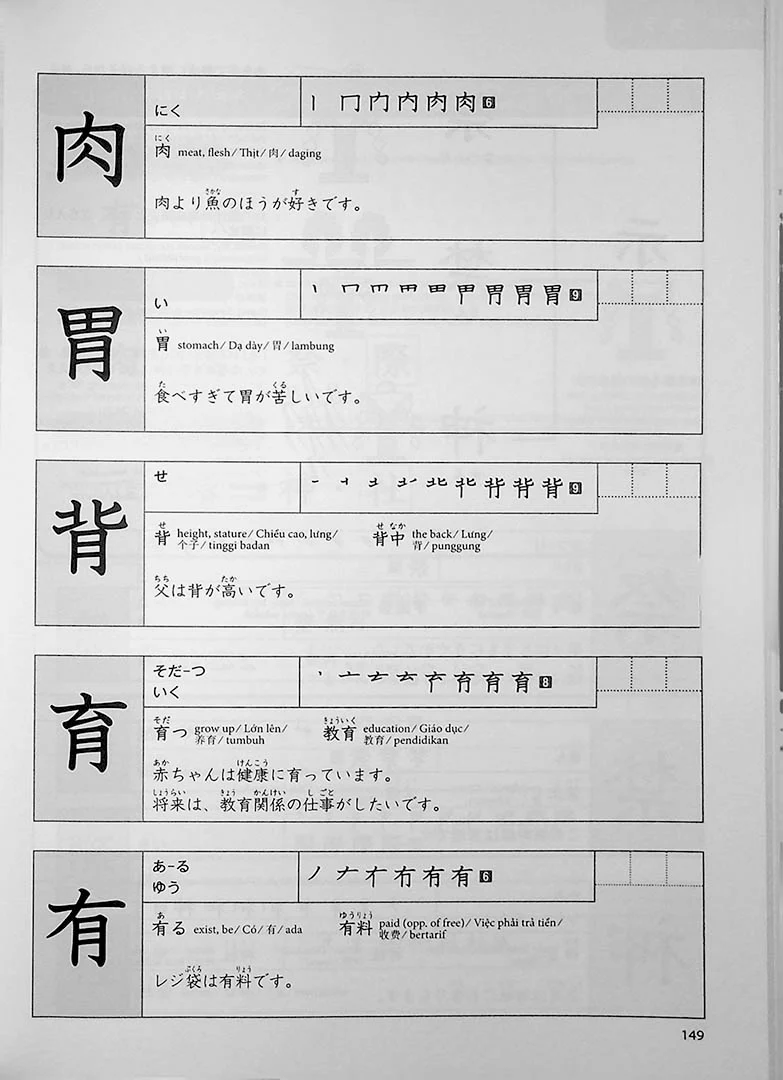 肉
にく
丨 冂 内 内 肉 肉 6
にく
肉 meat, flesh/ Thịt/ 肉/ daging
さかな す
肉より魚のほうが好きです。
胃
い
9
い
胃 stomach/ Dạ dày/ 胃/ lambung
た くる
食べすぎて胃が苦しいです。
背
せ
9
せ せ なか
背 height, stature/ Chiều cao, lưng/ 背中 the back/ Lưng/
个子/ tinggi badan 背/ punggung
ちち たか
父は背が高いです。
育
そだ-つ
いく
8
そだ きょういく
育つ grow up/ Lớn lên/ 教育 education/ Giáo dục/
养育/ tumbuh 教育/ pendidikan
あか けんこう
赤ちゃんは健康に育っています。
しょうらい きょう かんけい し ごと
将来は、教育関係の仕事がしたいです。
有
あ-る
ゆう
6
あ ゆうりょう
有る exist, be/ Có/ 有/ ada 有料 paid (opp. of free)/ Việc phải trả tiền/
收费/ bertarif
ぶくろ りょう
レジ袋は有料です。
149